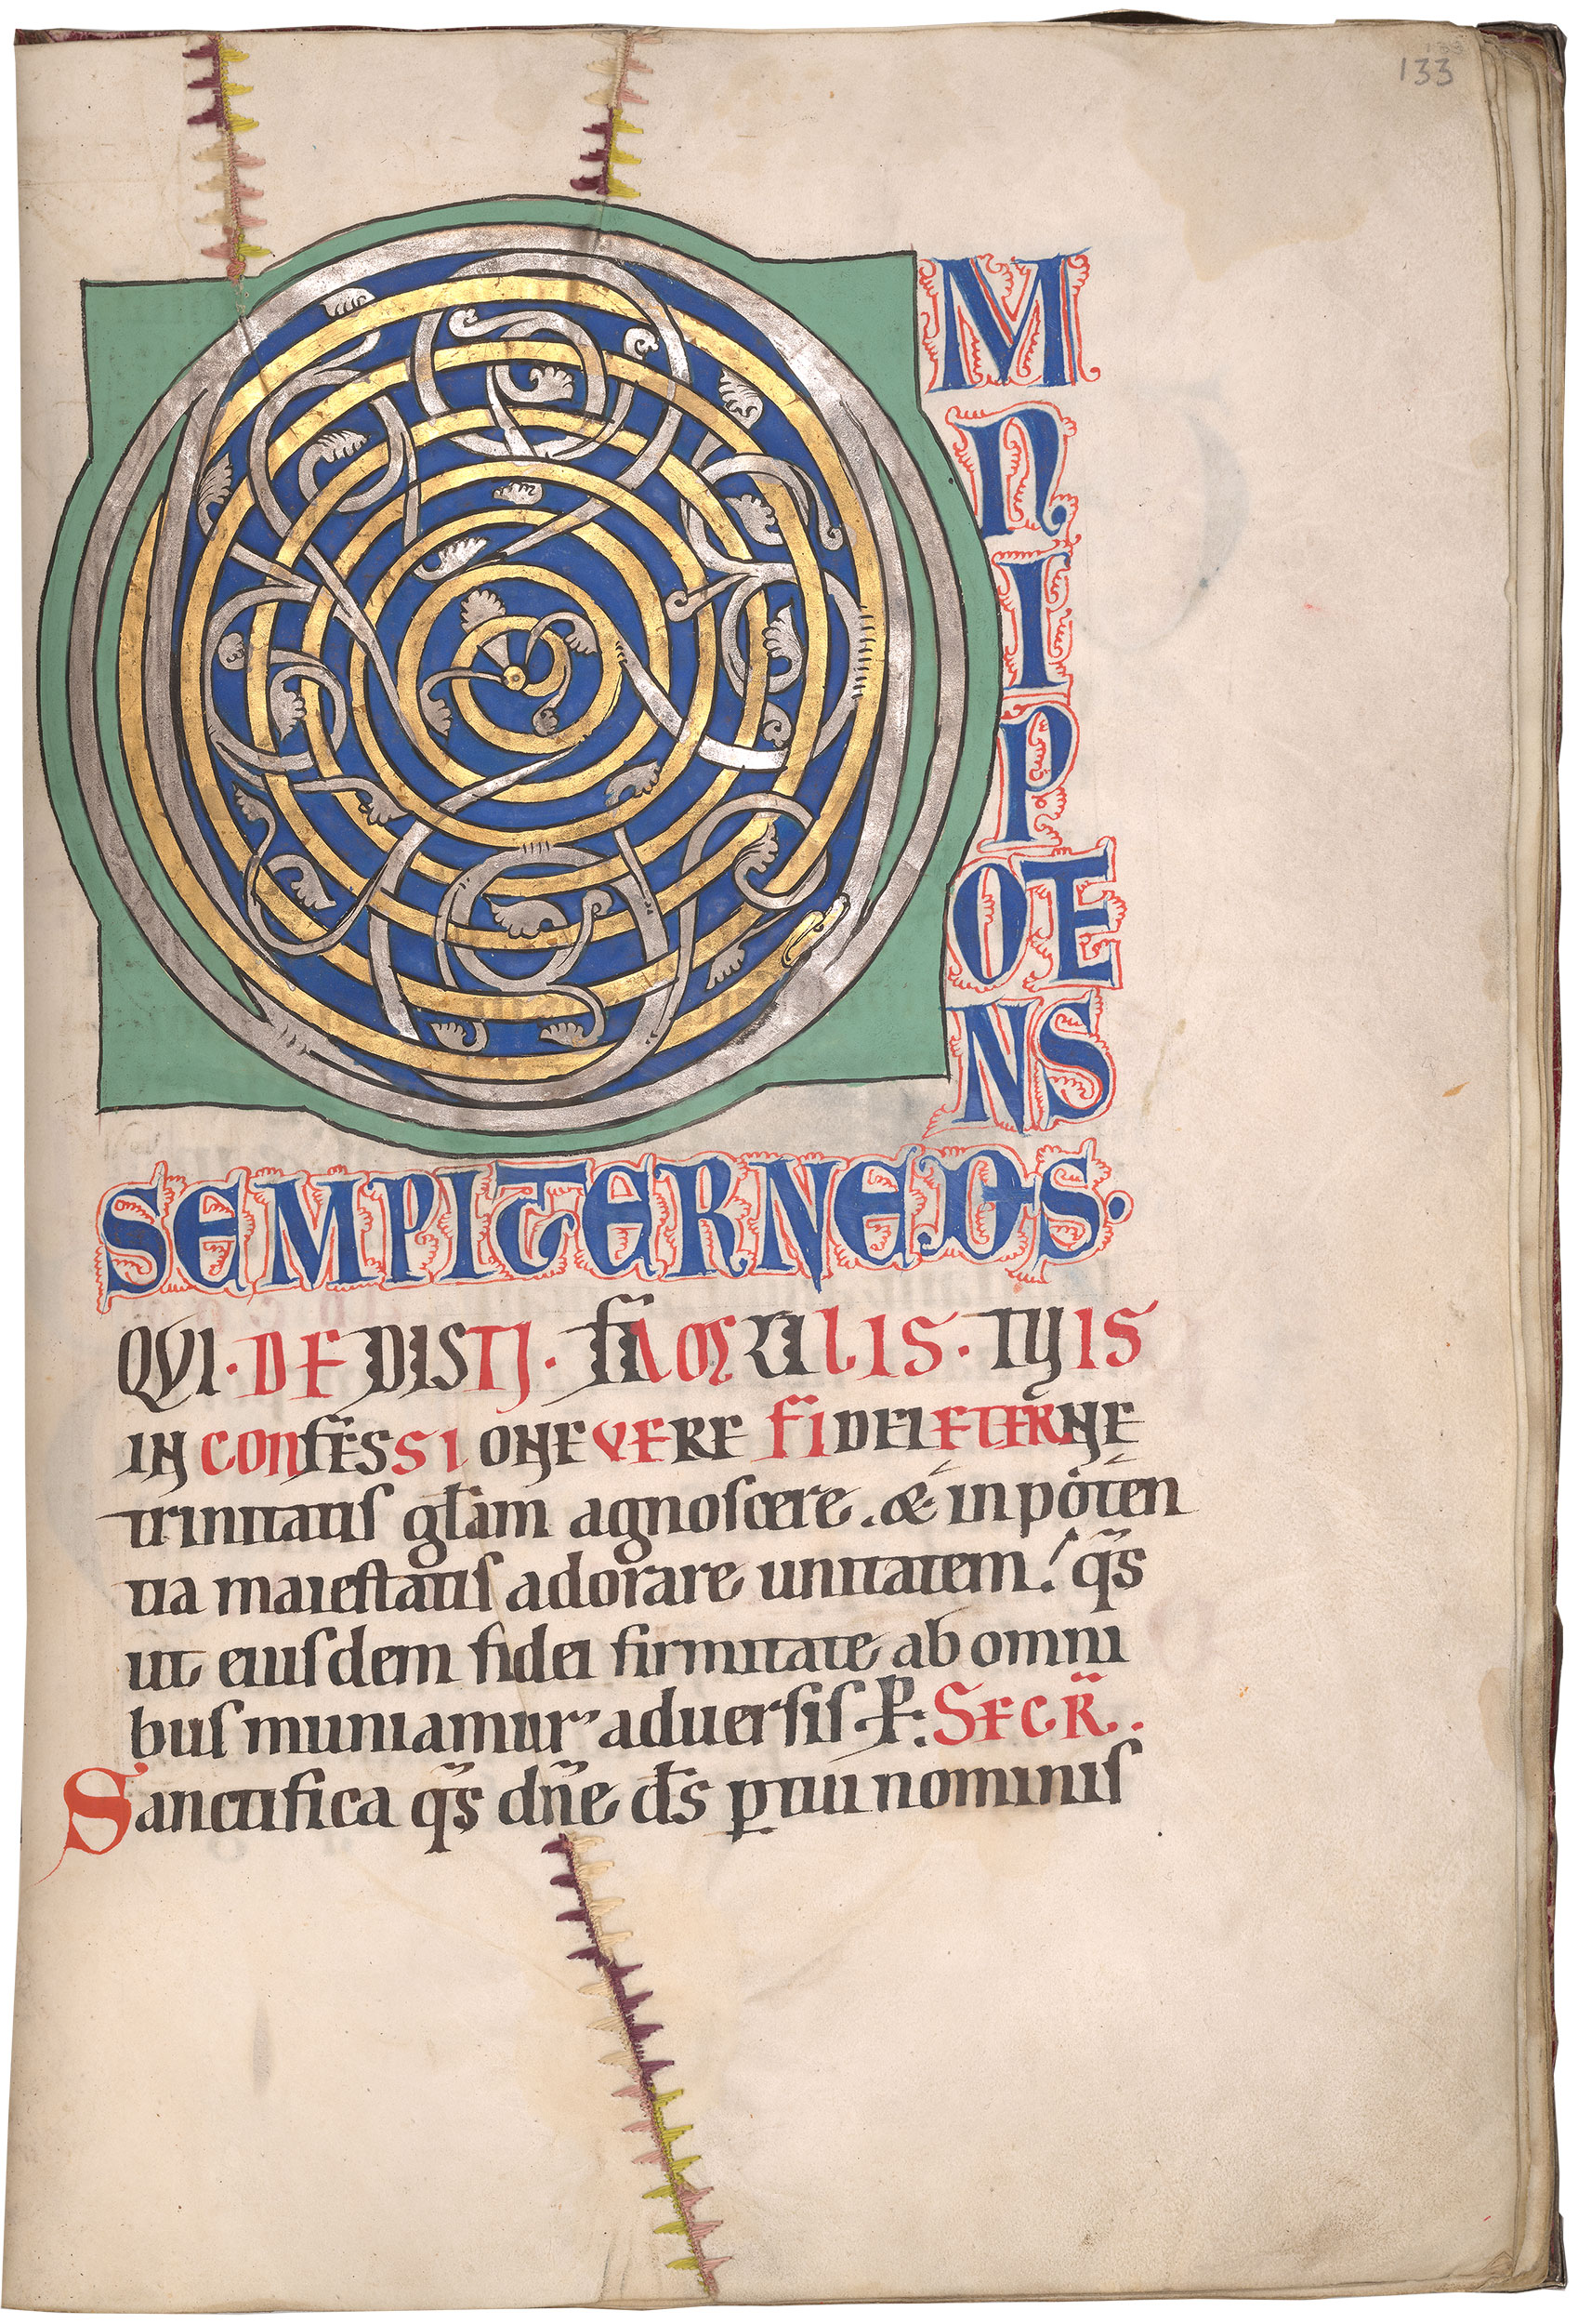 133
O
M
N
I
P
OTE
NS
SEMPITERNE D̄S.
QVI · DEDISTI · FAMULIS · TUIS
IN CONFESSIONE VERE FIDEI ETERNE
trinitatis gl̄am agnoscere. & in poten
tia maiestatis adorare unitatem! q̄s
ut eiusdem fidei firmitate ab omni
bus muniamur aduersis. P. SECR̄.
Sanctifica q̄s dn̄e d̄s p̱ tui nominis